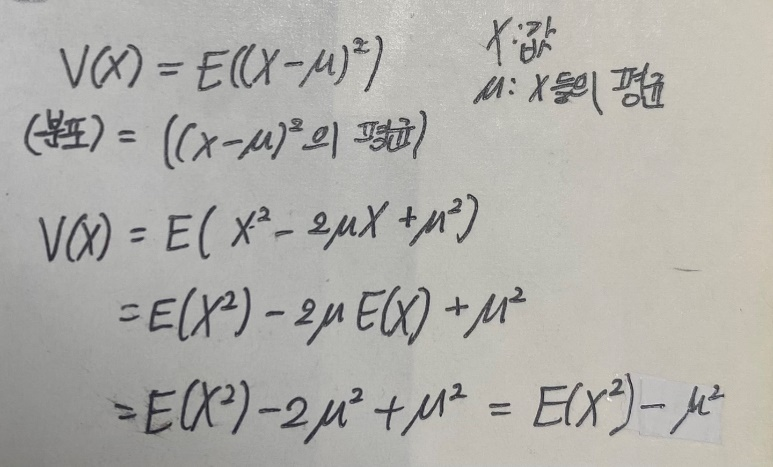 V(X) = E((X-μ)²)
X: 값
μ: X들의 평균
(분포) = ((x-μ)²의 평균)
V(X) = E( X² - 2μX + μ²)
= E(X²) - 2μ E(X) + μ²
= E(X²) - 2μ² + μ² = E(X²) - μ²